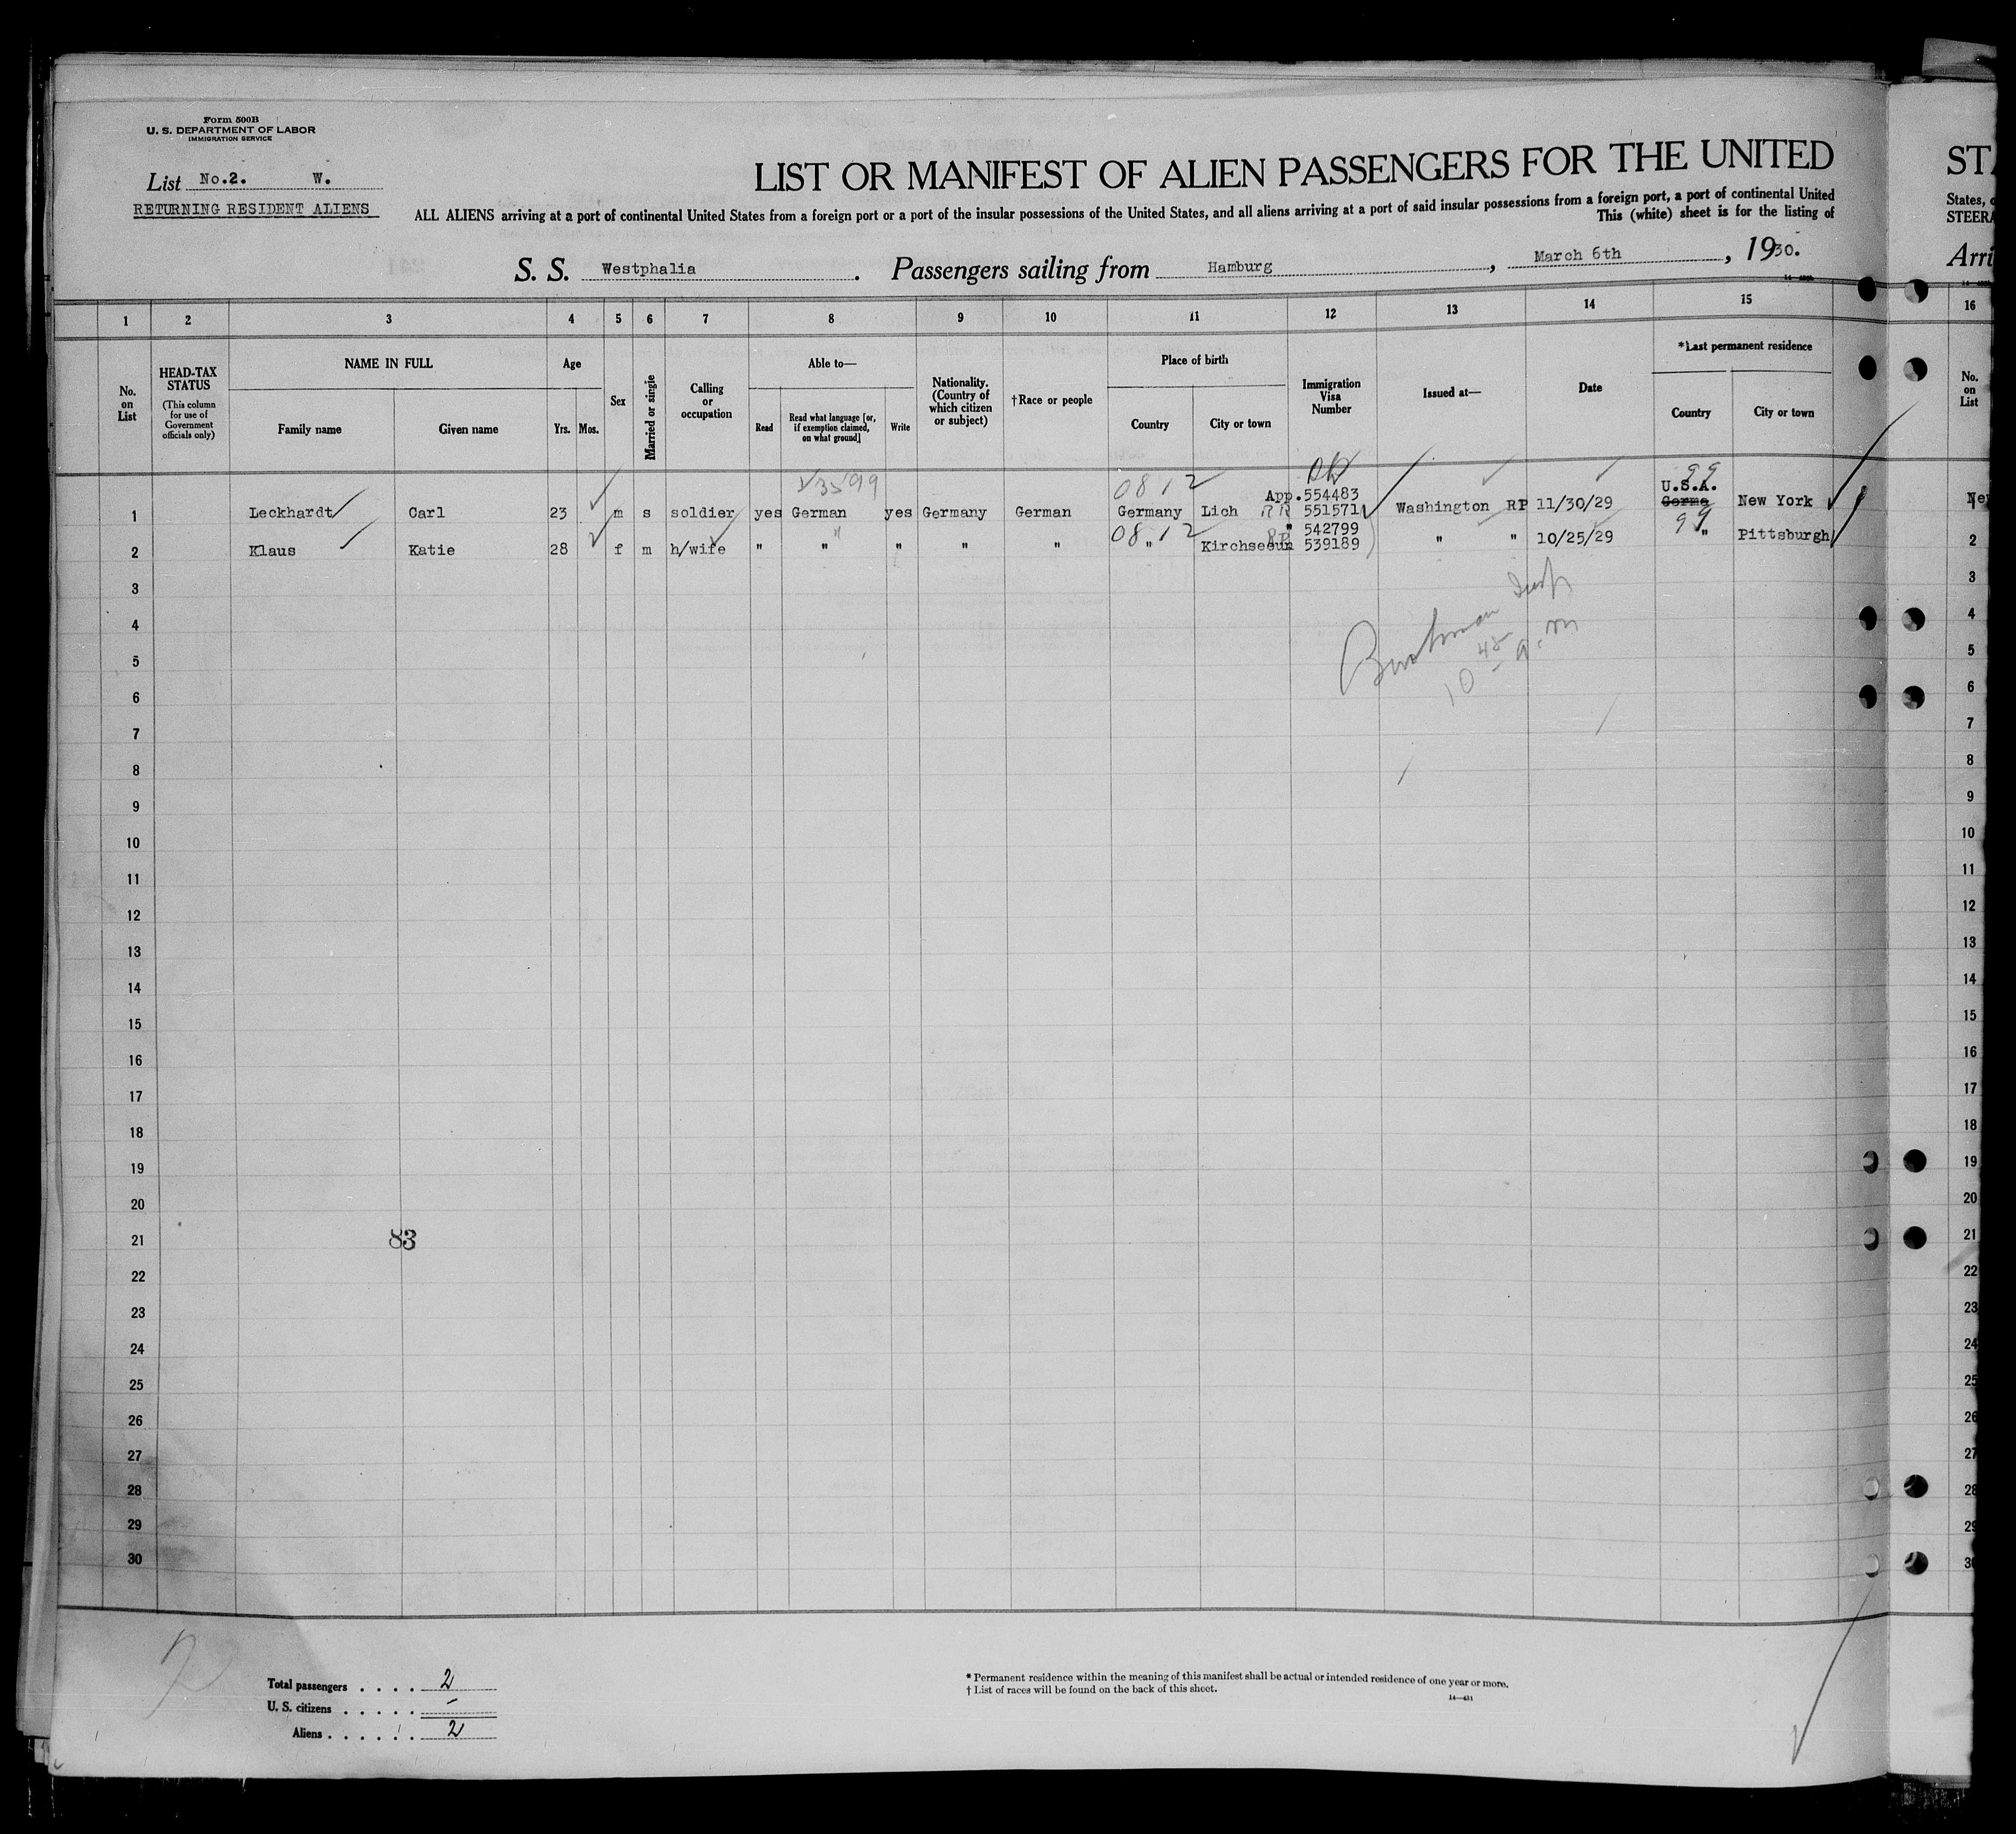 Form 500B
U. S. DEPARTMENT OF LABOR
IMMIGRATION SERVICE
List No.2. W.
RETURNING RESIDENT ALIENS
LIST OR MANIFEST OF ALIEN PASSENGERS FOR THE UNITED
ALL ALIENS arriving at a port of continental United States from a foreign port or a port of the insular possessions of the United States, and all aliens arriving at a port of said insular possessions from a foreign port, a port of continental United
This (white) sheet is for the listing of
S. S. Westphalia. Passengers sailing from Hamburg, March 6th, 1930.
1 2 3 4 5 6 7 8 9 10 11 12 13 14 15
No. on List
HEAD-TAX STATUS
(This column for use of Government officials only)
NAME IN FULL
Family name Given name
Age
Yrs. Mos.
Sex
Married or single
Calling or occupation
Able to—
Read
Read what language [or, if exemption claimed, on what ground]
Write
Nationality. (Country of which citizen or subject)
†Race or people
Place of birth
Country City or town
Immigration Visa Number
Issued at—
Date
*Last permanent residence
Country City or town
3599
0812
99
App. 554483 U.S.A.
1 Leckhardt Carl 23 m s soldier yes German yes Germany German Germany Lich RP 551571 Washington RP 11/30/29 Germa New York
0812 " 542799 99
2 Klaus Katie 28 f m h/wife " " " " " " Kirchseeun RP 539189 " " 10/25/29 " Pittsburgh
3
4
5
6
7
8
9
10
11
12
13
14
15
16
17
18
19
20
21
22
23
24
25
26
27
28
29
30
Insp
10 45 a.m
83
2
Total passengers . . . . 2
U. S. citizens . . . . . –
Aliens . . . . . . 2
* Permanent residence within the meaning of this manifest shall be actual or intended residence of one year or more.
† List of races will be found on the back of this sheet.
ST
States,
STEERA
Arri
16
No. on List
1
2
3
4
5
6
7
8
9
10
11
12
13
14
15
16
17
18
19
20
21
22
23
24
25
26
27
28
29
30